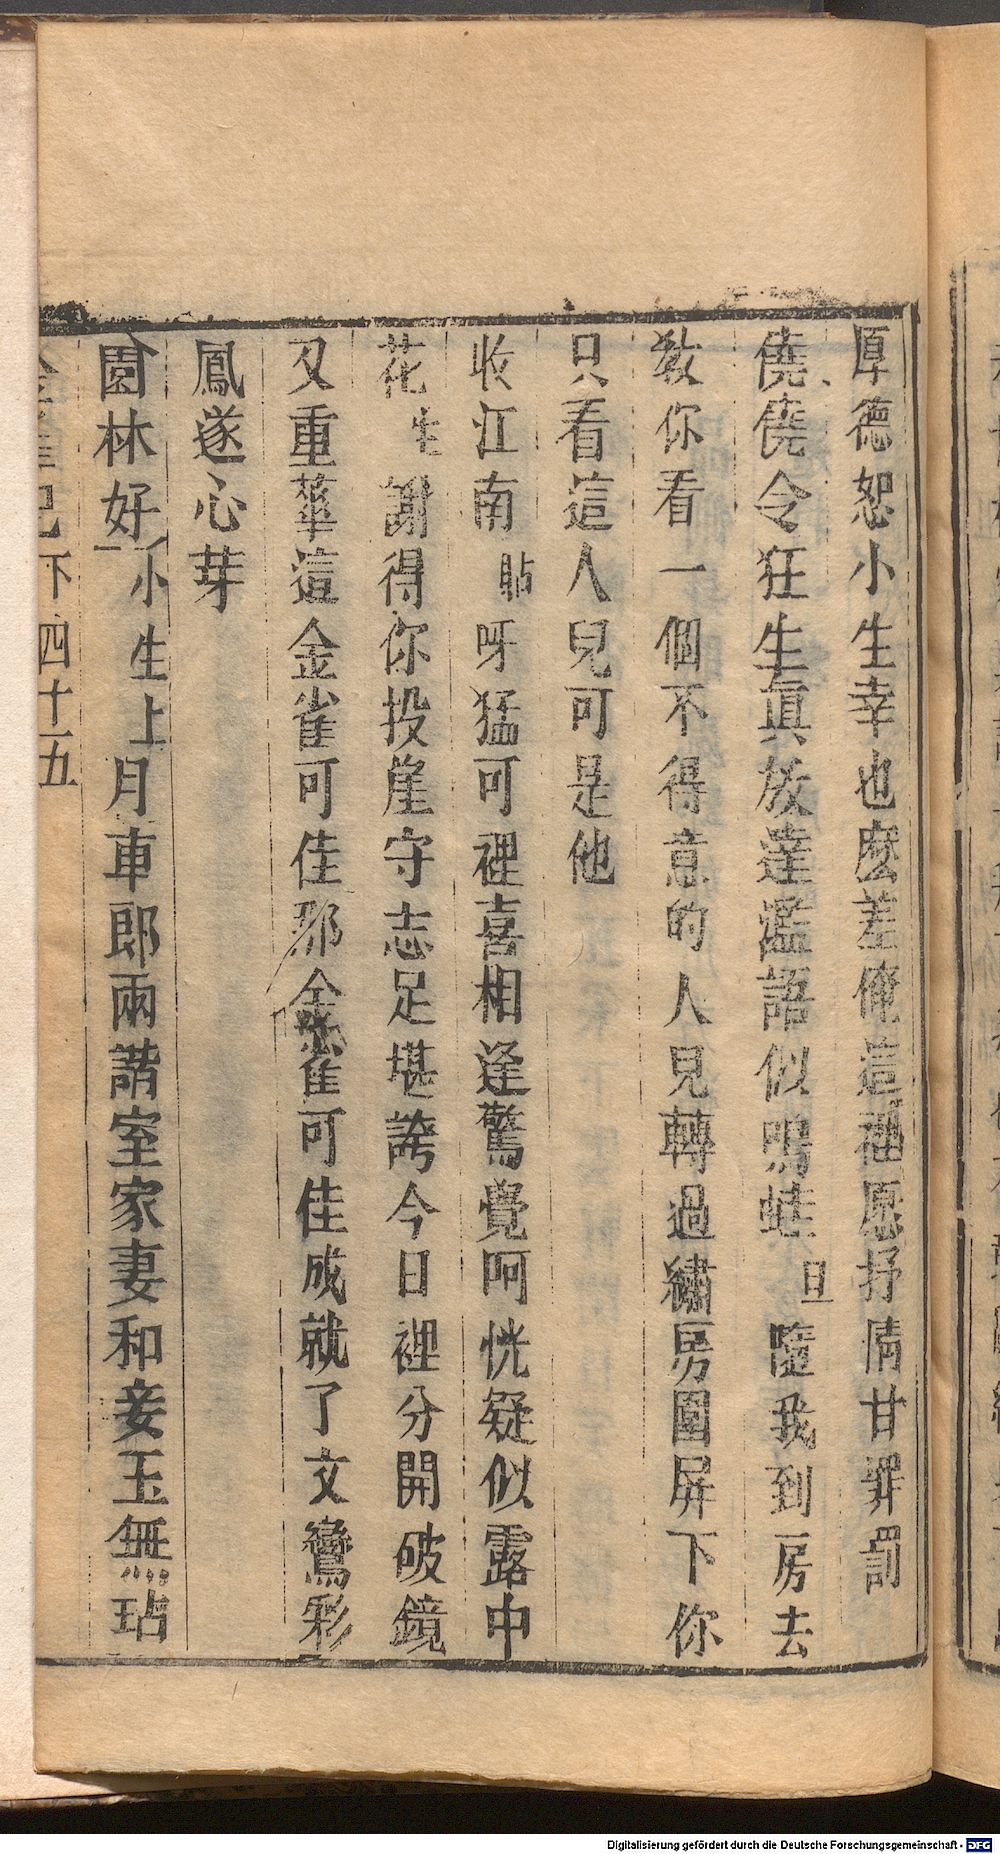 厚德恕小生幸也麼差俺這裡愿抒情甘罪罰
僥僥令狂生眞放達濫語似鳴蛙旦隨我到房去
教你看一個不得意的人見轉過繡房圍屏下你
只看這人兒可是他
收江南貼呀猛可裡喜相逢驚覺呵恍疑似霧中
花生謝得你投崖守志足堪誇今日裡分開破鏡
又重華這金雀可佳那金雀可佳成就了文鸞彩
鳳遂心芽
園林好小生上月車郎兩諧室家妻和妾玉無玷
金雀記下四十五
Digitalisierung gefördert durch die Deutsche Forschungsgemeinschaft - DFG